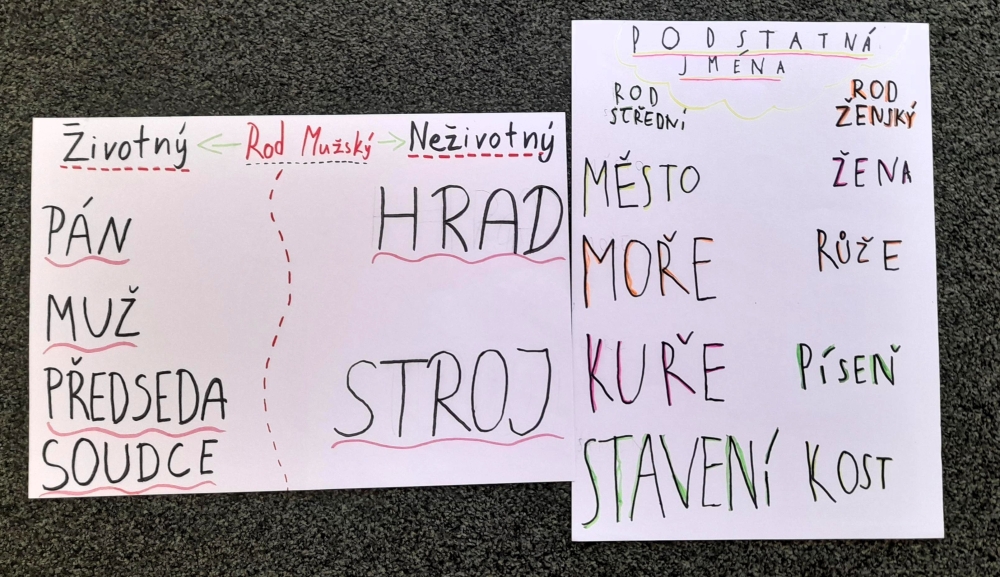 Životný ← Rod Mužský → Neživotný
PÁN
HRAD
MUŽ
PŘEDSEDA
STROJ
SOUDCE
PODSTATNÁ
JMÉNA
ROD
STŘEDNÍ
ROD
ŽENSKÝ
MĚSTO
ŽENA
MOŘE
RŮŽE
KUŘE
PÍSEŇ
STAVENÍ
KOST